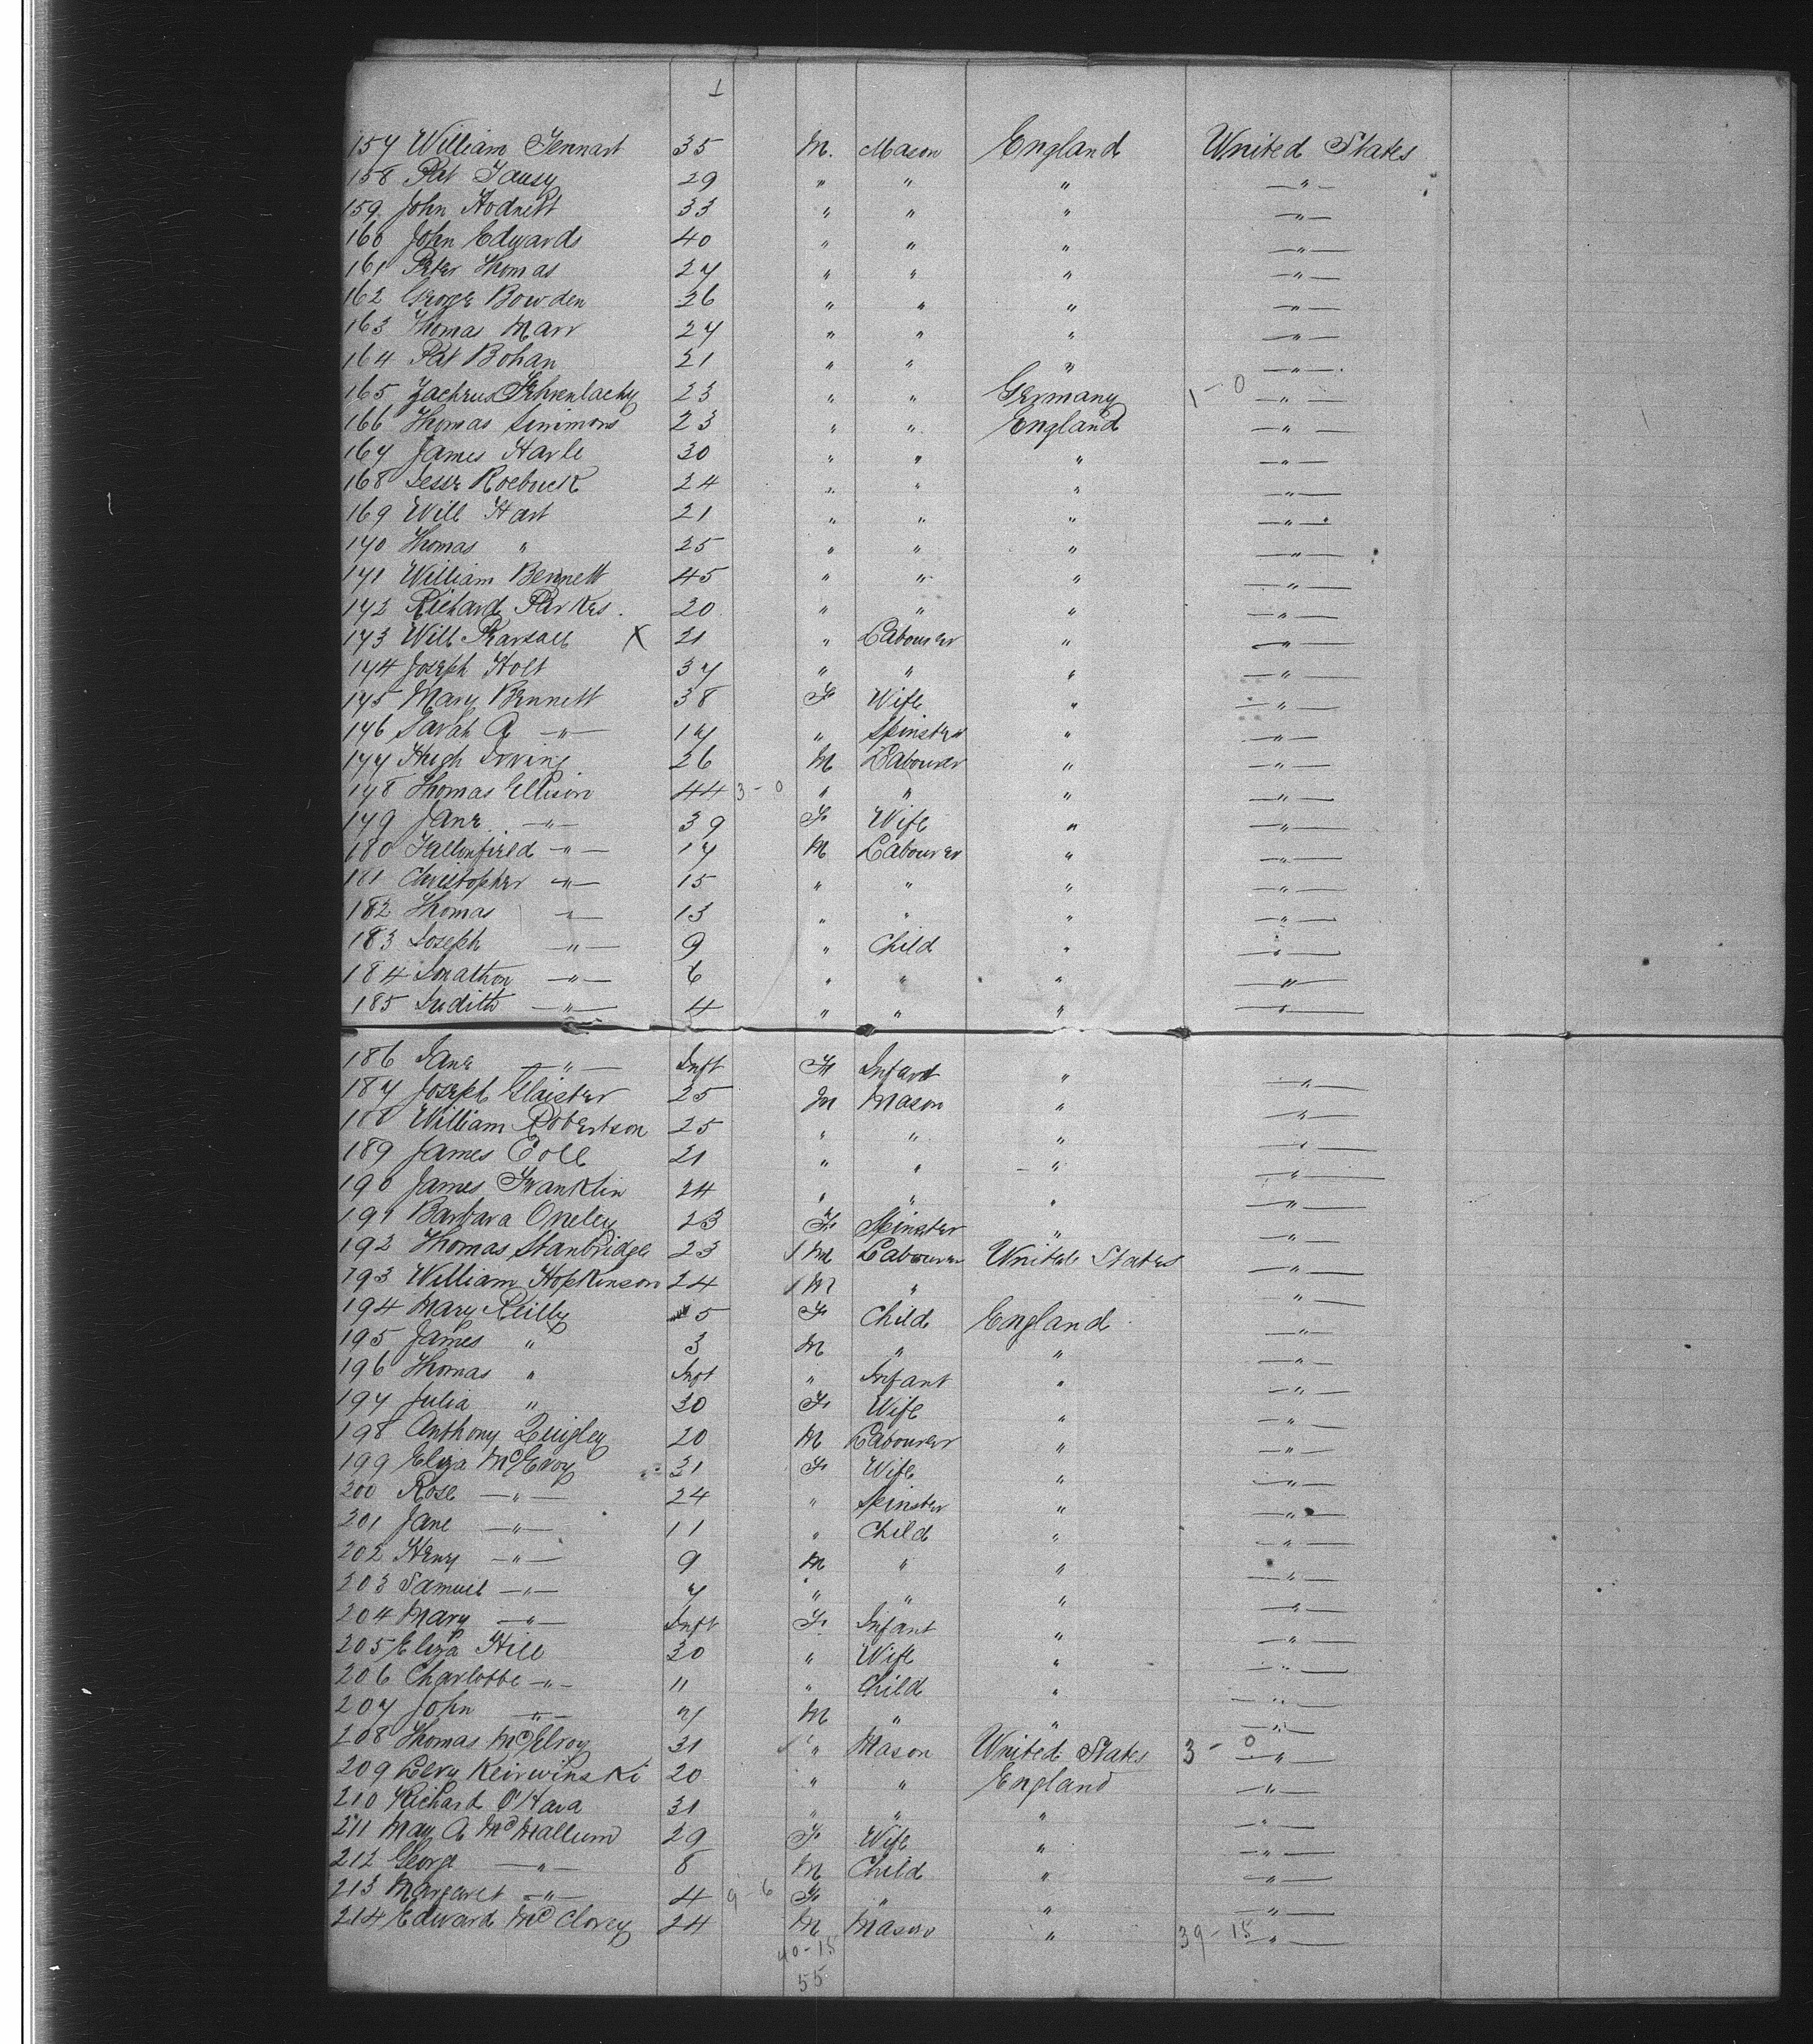 1
157 William Tennant 35 M. Mason England United States
158 Pat 29 " " " — " —
159 John Hodnett 33 " " " — " —
160 John Edwards 40 " " " — " —
161 Peter Thomas 27 " " " — " —
162 George Bowden 26 " " " — " —
163 Thomas Marr 27 " " " — " —
164 Pat Bohan 21 " " " — " —
165 23 " " Germany 1 - 0 — " —
166 Thomas Simmons 23 " " England — " —
167 James Harle 30 " " " — " —
168 Jesse Roebuck 24 " " " — " —
169 Will Hart 21 " " " — " —
170 Thomas " 25 " " " — " —
171 William Bennett 45 " " " — " —
172 Richard Parkes 20 " " " — " —
173 Will Pearsall X 21 " Labourer " — " —
174 Joseph Holt 37 " " " — " —
175 Mary Bennett 38 F Wife " — " —
176 Sarah A — " — 17 " Spinster " — " —
177 Hugh 26 M Labourer " — " —
178 Thomas Ellison 44 3 - 0 " " " — " —
179 Jane — " — 39 F Wife " — " —
180 — " — 17 M Labourer " — " —
181 Christopher — " — 15 " " " — " —
182 Thomas — " — 13 " " " — " —
183 Joseph — " — 9 " Child " — " —
184 Jonathon — " — 6 " " " — " —
185 Judith — " — 4 " " " — " —
186 Jane — " — Inft F Infant " — " —
187 Joseph Glaister 25 M Mason " — " —
188 William Robertson 25 " " " — " —
189 James Cole 21 " " " — " —
190 James Franklin 24 " " " — " —
191 Barbara Oneley 23 F Spinster " — " —
192 Thomas Stanbridge 23 1 M Labourer United States — " —
193 William Hopkinson 24 1 M " — " —
194 Mary Reilly 5 F Child England — " —
195 James " 3 M " " — " —
196 Thomas " Inft " Infant " — " —
197 Julia " 30 F Wife " — " —
198 Anthony Quigley 20 M Labourer " — " —
199 Eliza McEvoy 31 F Wife " — " —
200 Rose — " — 24 " Spinster " — " —
201 Jane — " — 11 " Child " — " —
202 Henry — " — 9 M " " — " —
203 Samuel — " — 7 " " " — " —
204 Mary — " — Inft F Infant " — " —
205 Eliza Hill 30 " Wife " — " —
206 Charlotte — " — 11 " Child " — " —
207 John — " — 7 M " " — " —
208 Thomas McElroy 31 1 " Mason United States 3 - 0 — " —
209 Levy Keirwinski 20 " " England — " —
210 Richard O'Hara 31 " " " — " —
211 May A McMallum 29 F Wife " — " —
212 George — " — 8 M Child " — " —
213 Margaret — " — 4 9 - 6 F " " — " —
214 Edward McClorey 24 M Mason " 39 - 15 — " —
40 - 15
55